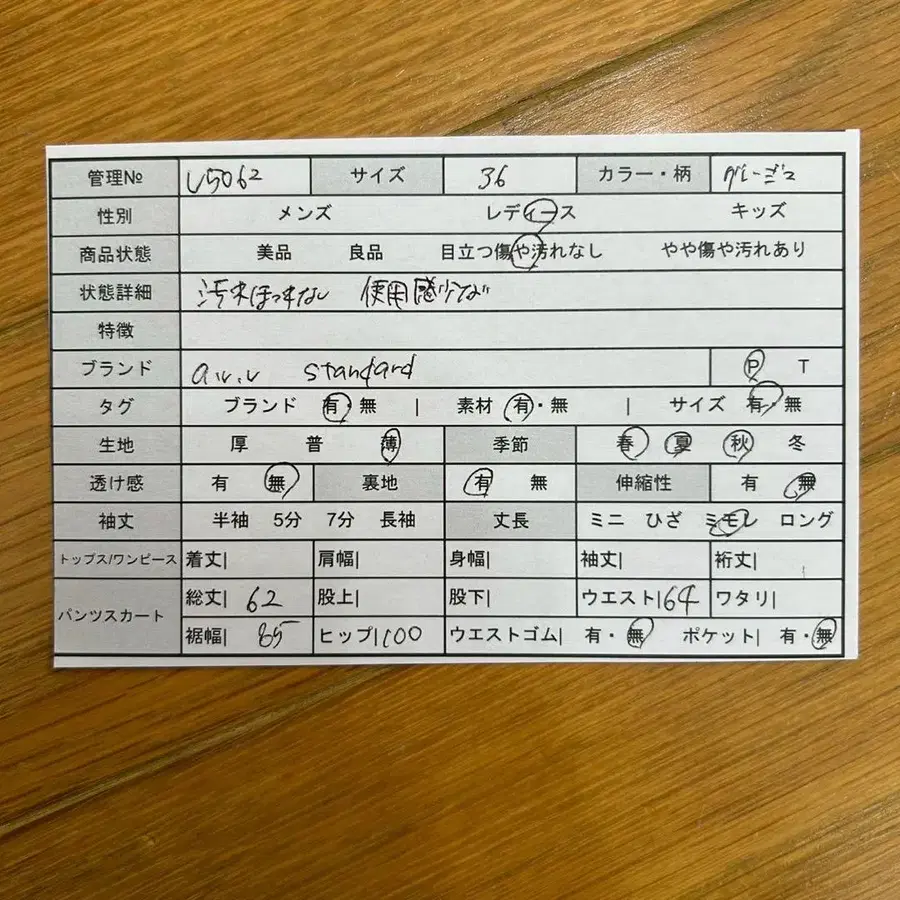 管理№ U5062 サイズ 36 カラー・柄 グレージュ
性別 メンズ レディース キッズ
商品状態 美品 良品 目立つ傷や汚れなし やや傷や汚れあり
状態詳細 汚れほつれなし 使用感少ない
特徴
ブランド a.v.v standard P T
タグ ブランド 有・無 | 素材 有・無 | サイズ 有・無
生地 厚 普 薄 季節 春 夏 秋 冬
透け感 有 無 裏地 有 無 伸縮性 有 無
袖丈 半袖 5分 7分 長袖 丈長 ミニ ひざ ミモレ ロング
トップス/ワンピース 着丈| 肩幅| 身幅| 袖丈| 裄丈|
パンツスカート 総丈| 62 股上| 股下| ウエスト|64 ワタリ|
裾幅| 85 ヒップ|100 ウエストゴム| 有・無 ポケット| 有・無